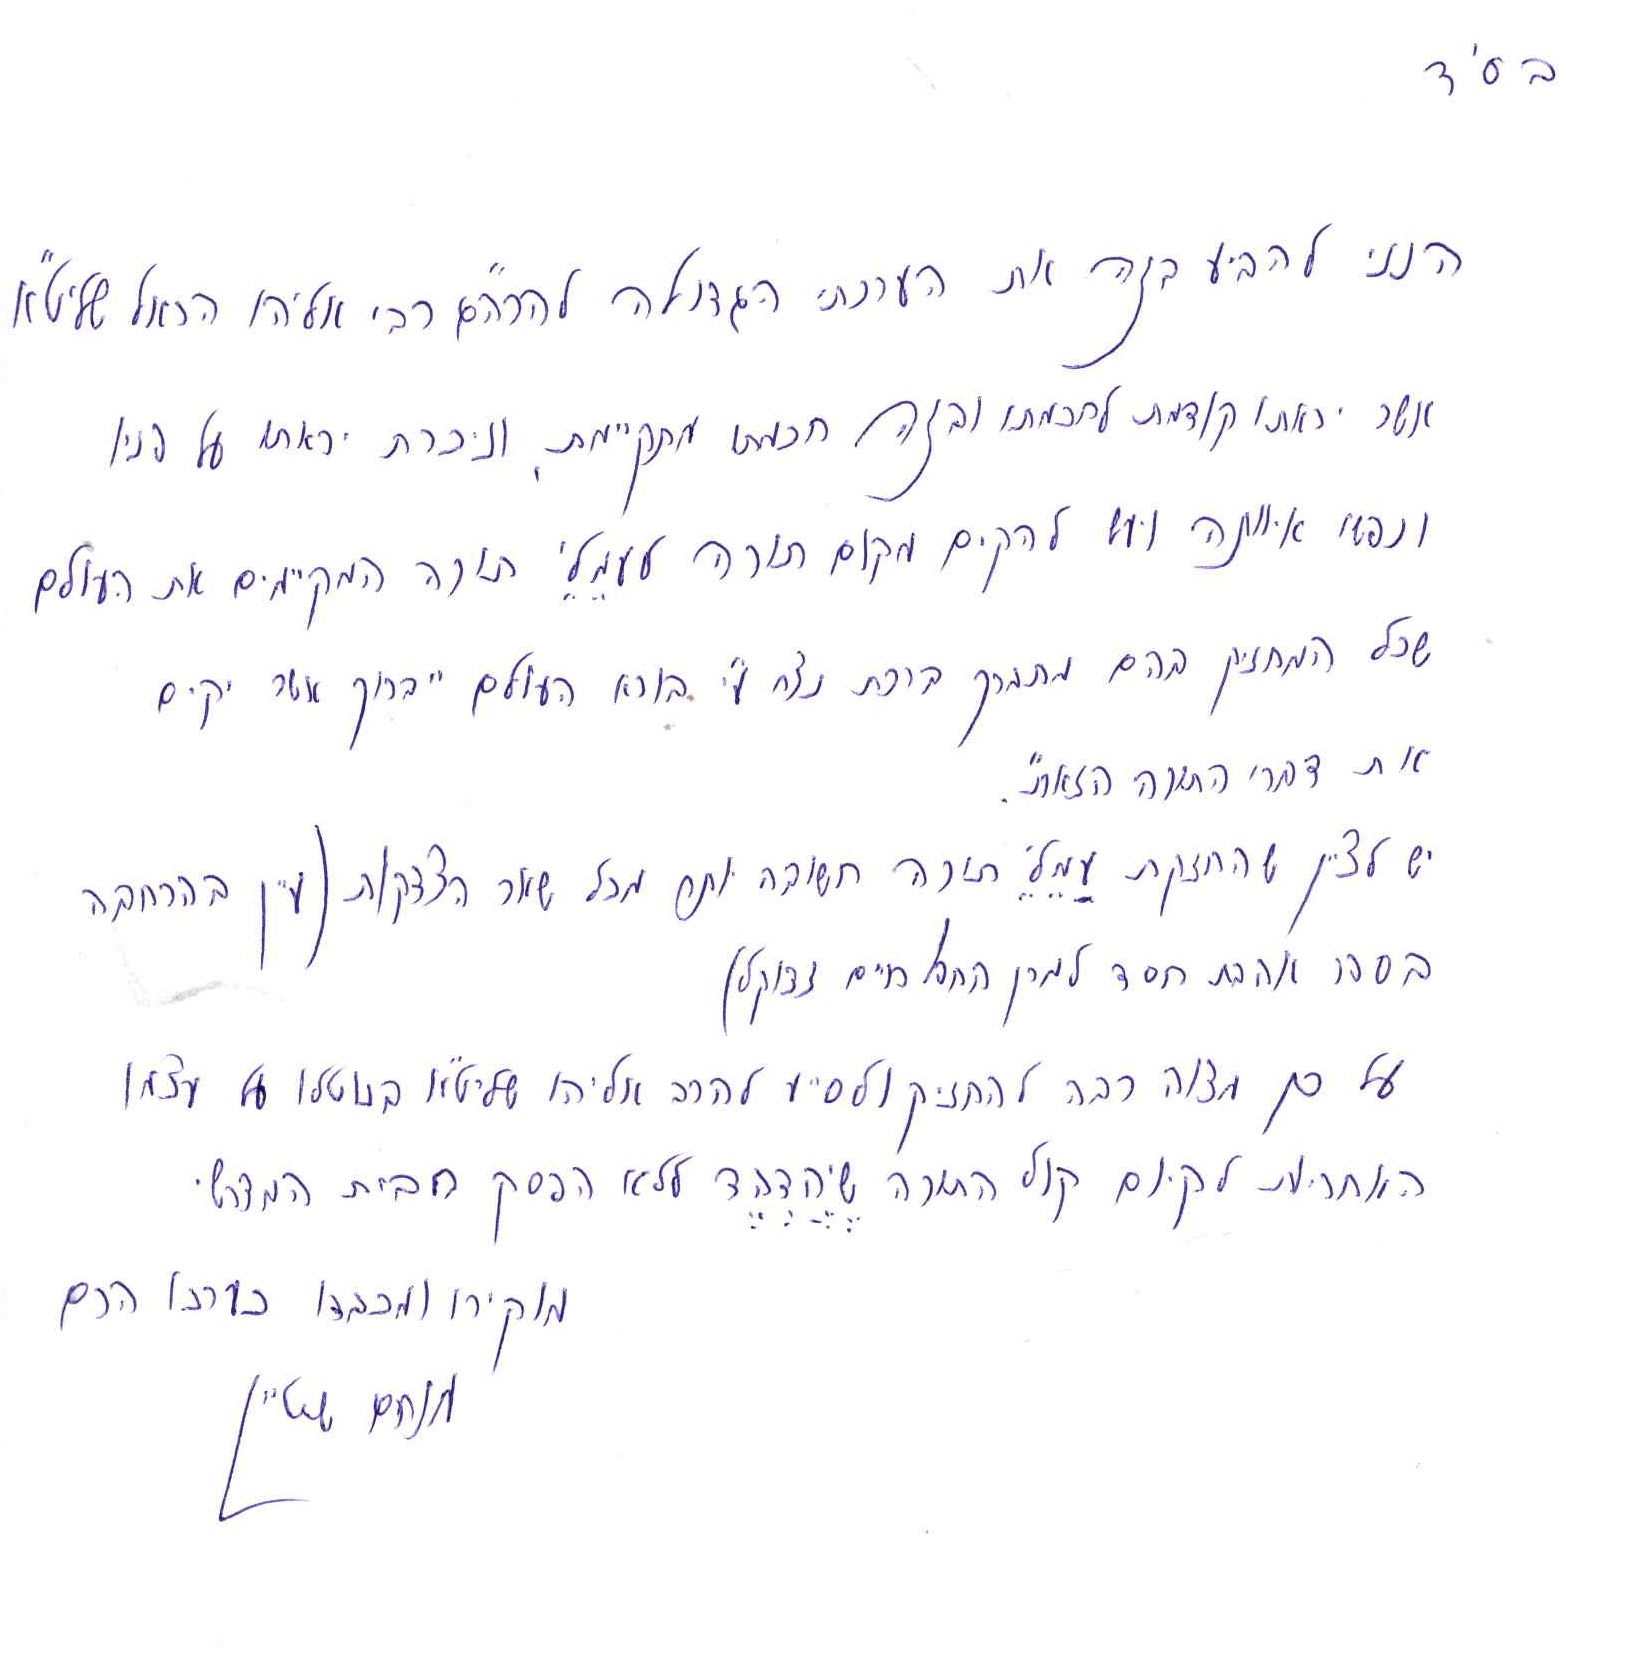 בס'ד
הנני להביע בזה את הערכתי הגדולה להרה"ג רבי אליהו הראל שליט"א
אשר יראתו קודמת לחכמתו ובזה חכמתו מתקיימת, וניכרת יראתו על פניו
ונפשו איוותה ויעש להקים מקום תורה לעמלי תורה המקיימים את העולם
שכל המחזיק בהם מתברך ברכת נצח ע"י בורא העולם "ברוך אשר יקים
את דברי התורה הזאת".
יש לציין שהחזקת עמלי תורה חשובה יותר מכל שאר הצדקות (עיין בהרחבה
בספר אהבת חסד למרן החפץ חיים זצוקל)
על כן מצוה רבה להחזיק ולסייע להרב אליהו שליט"א בנוטלו על עצמו
האחריות לקיום קול התורה שיהדהד ללא הפסק מבית המדרש
מוקירו ומכבדו כערכו הרם
מנחם שטיין